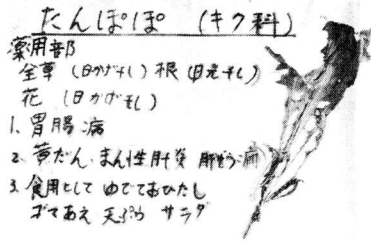 たんぽぽ (キク科)
薬用部
全草 (日かげ干し) 根 (日光干し)
花 (日かげ干し)
1. 胃腸病
2. 黄だん まん性肝炎 肝ぞう病
3. 食用として ゆでておひたし
ごまあえ 天ぷら サラダ